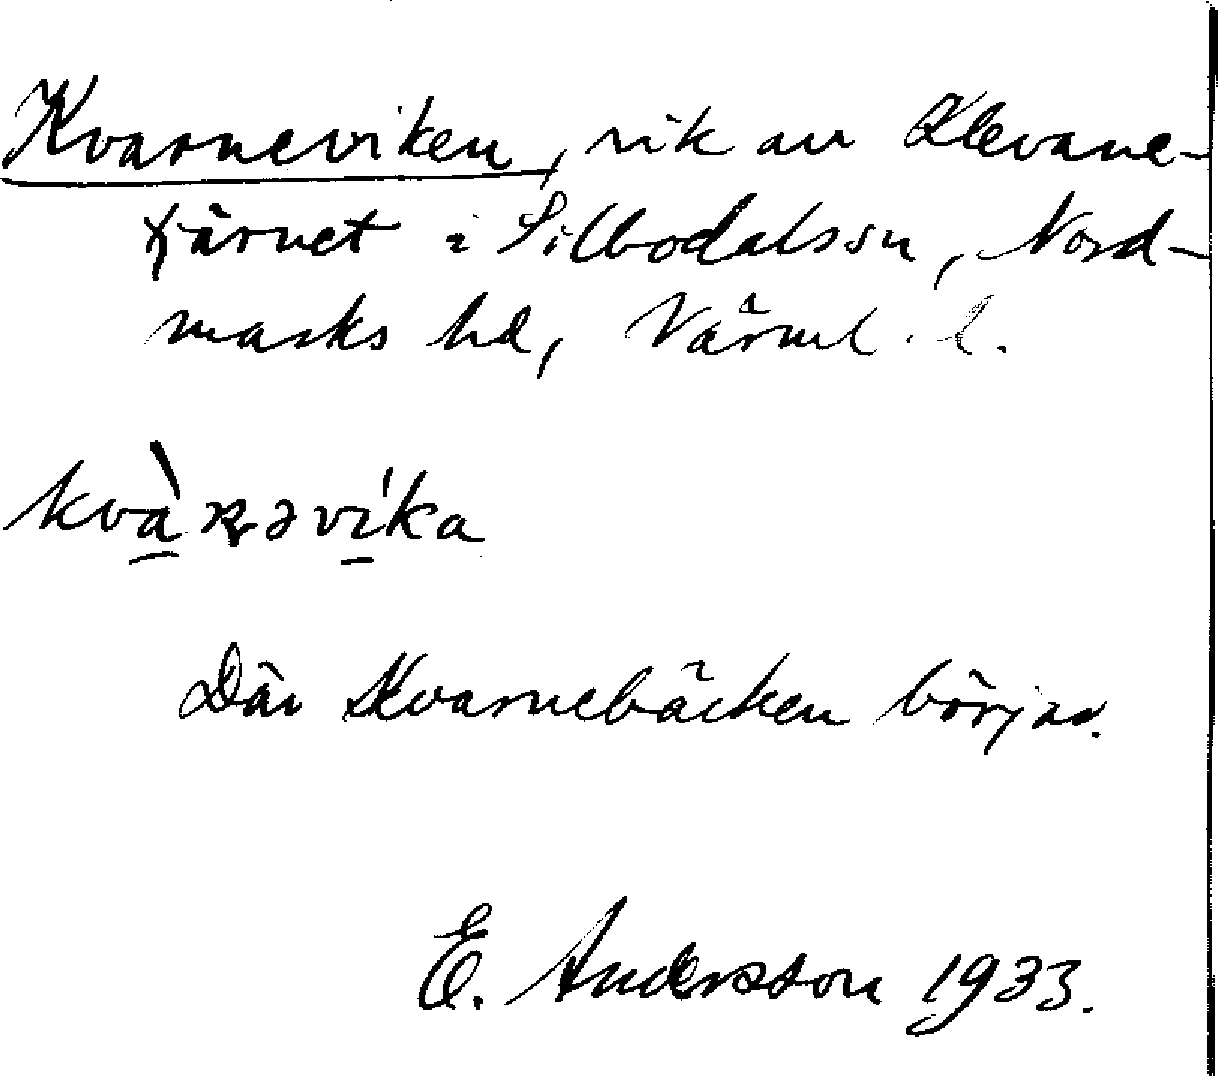 Kvarneviken, vik av Klevane-
tjärnet i Silbodalssn, Nord-
marks hd, Värml. l.
kvàɳəvi'ka
Där Kvarnebäcken börjar.
E. Andersson 1933.